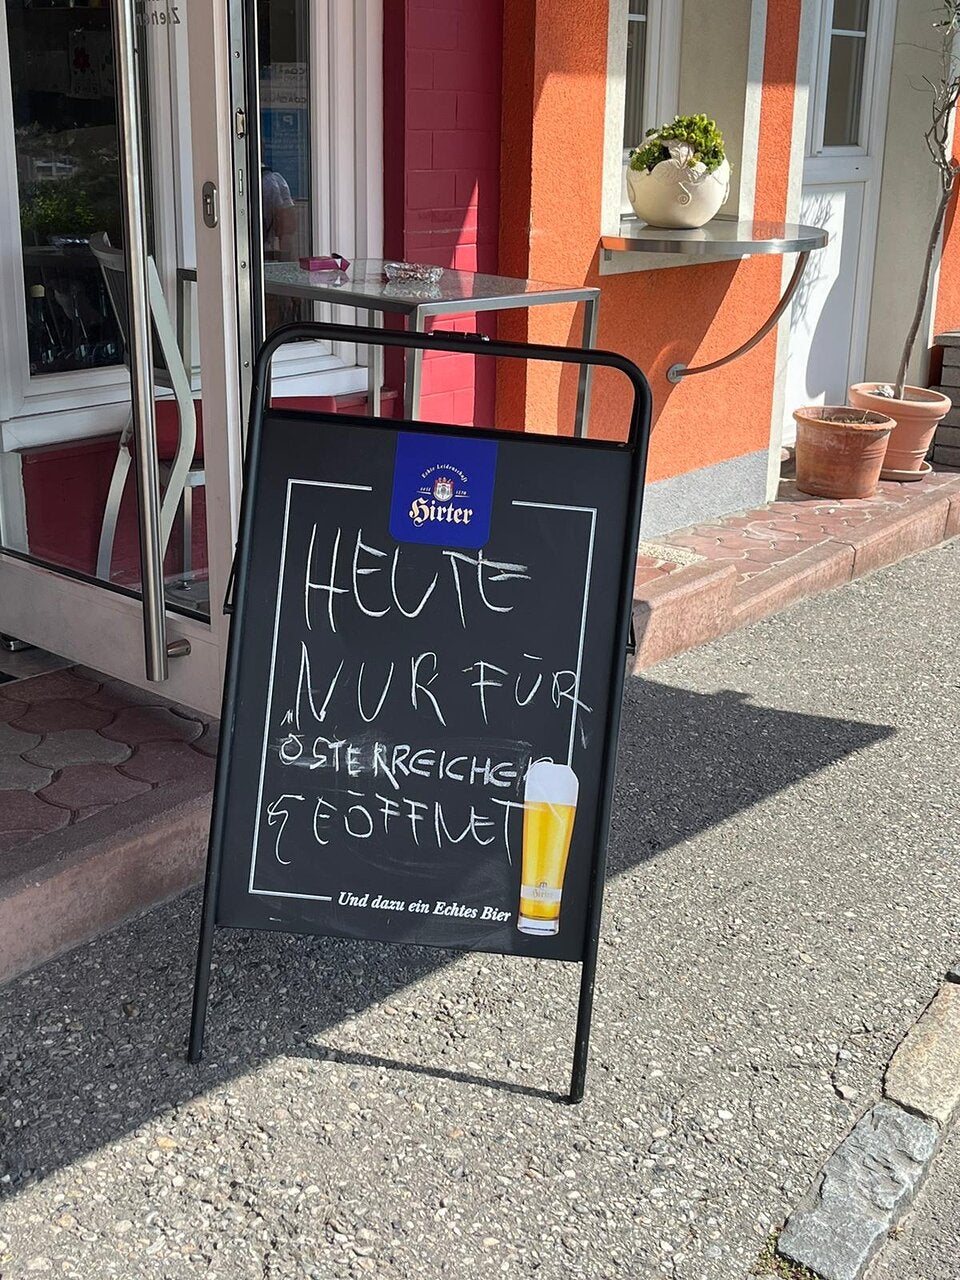 Echte Leidenschaft
seit 1270
Hirter
HEUTE
NUR FÜR
ÖSTERREICHER
GEÖFFNET
Und dazu ein Echtes Bier
Hirter